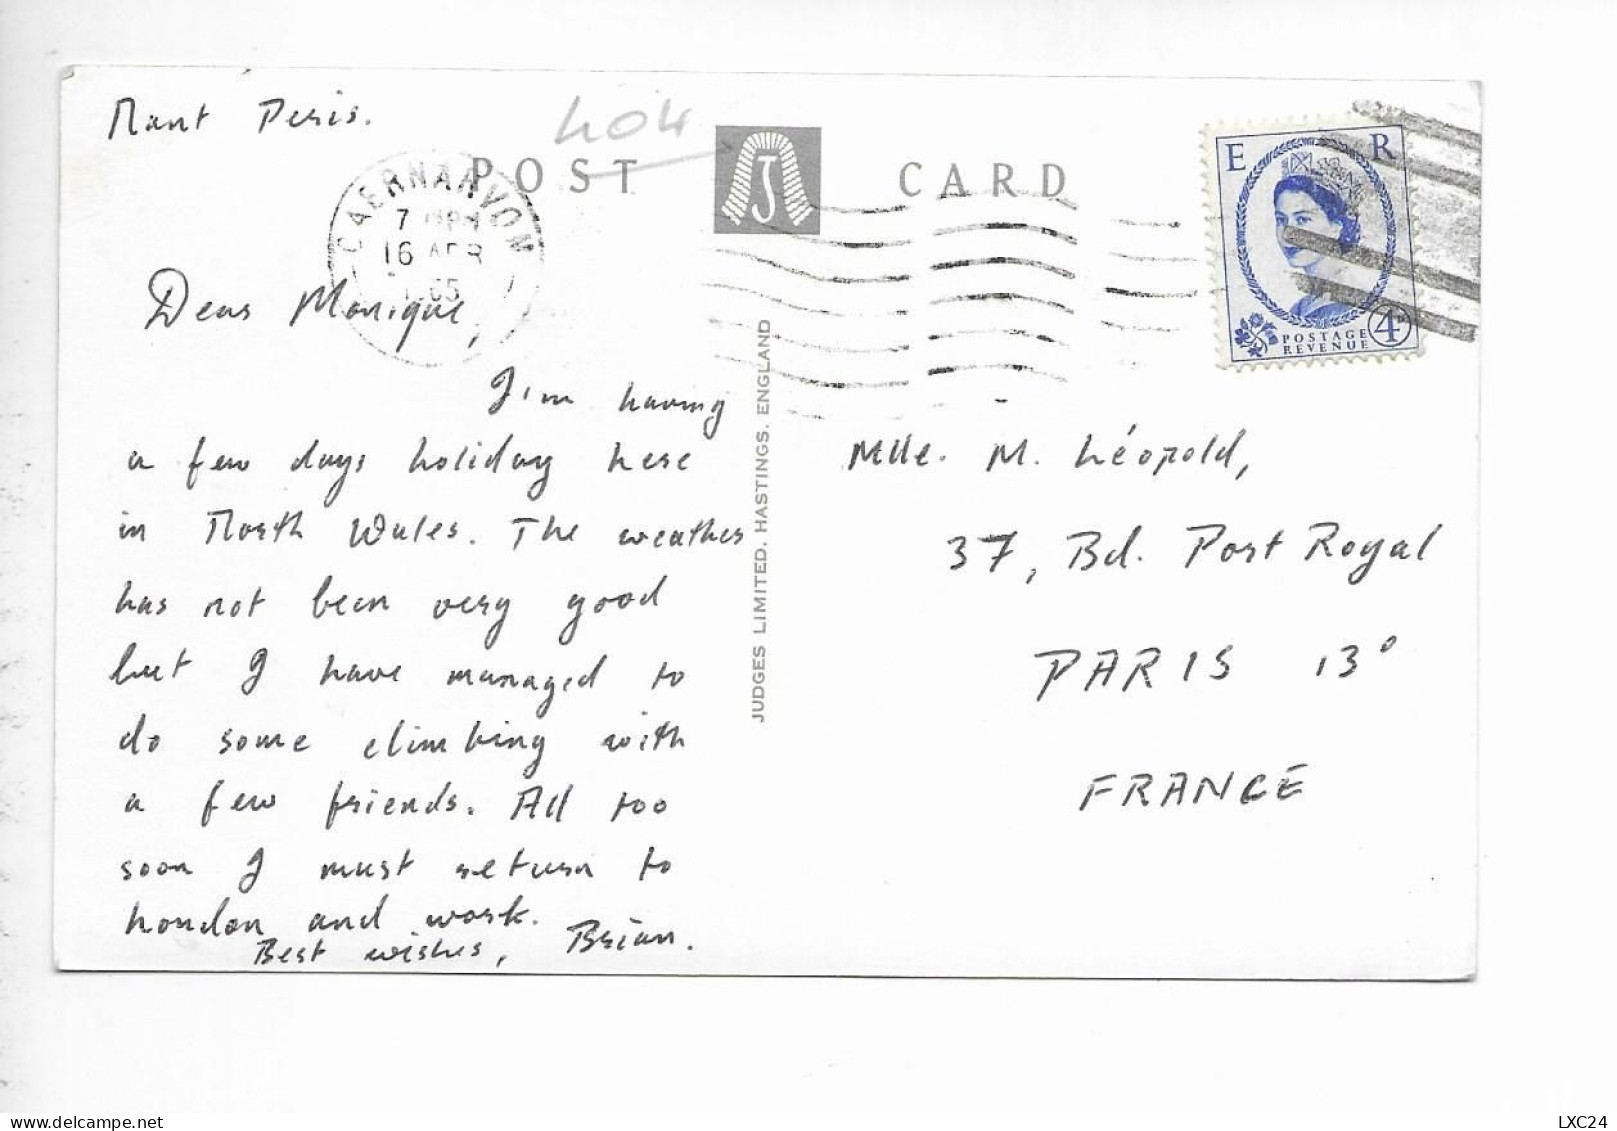 Nant Peris.
404
POST CARD
J
CAERNARVON
16 APR
65
E R
POSTAGE
REVENUE
4D
Dear Monique,
I'm having
a few days holiday here
in North Wales. The weather
has not been very good
but I have managed to
do some climbing with
a few friends. All too
soon I must return to
London and work.
Best wishes, Brian.
JUDGES LIMITED. HASTINGS. ENGLAND
Mlle. M. Léopold,
37, Bd. Port Royal
PARIS 13°
FRANCE
LXC24